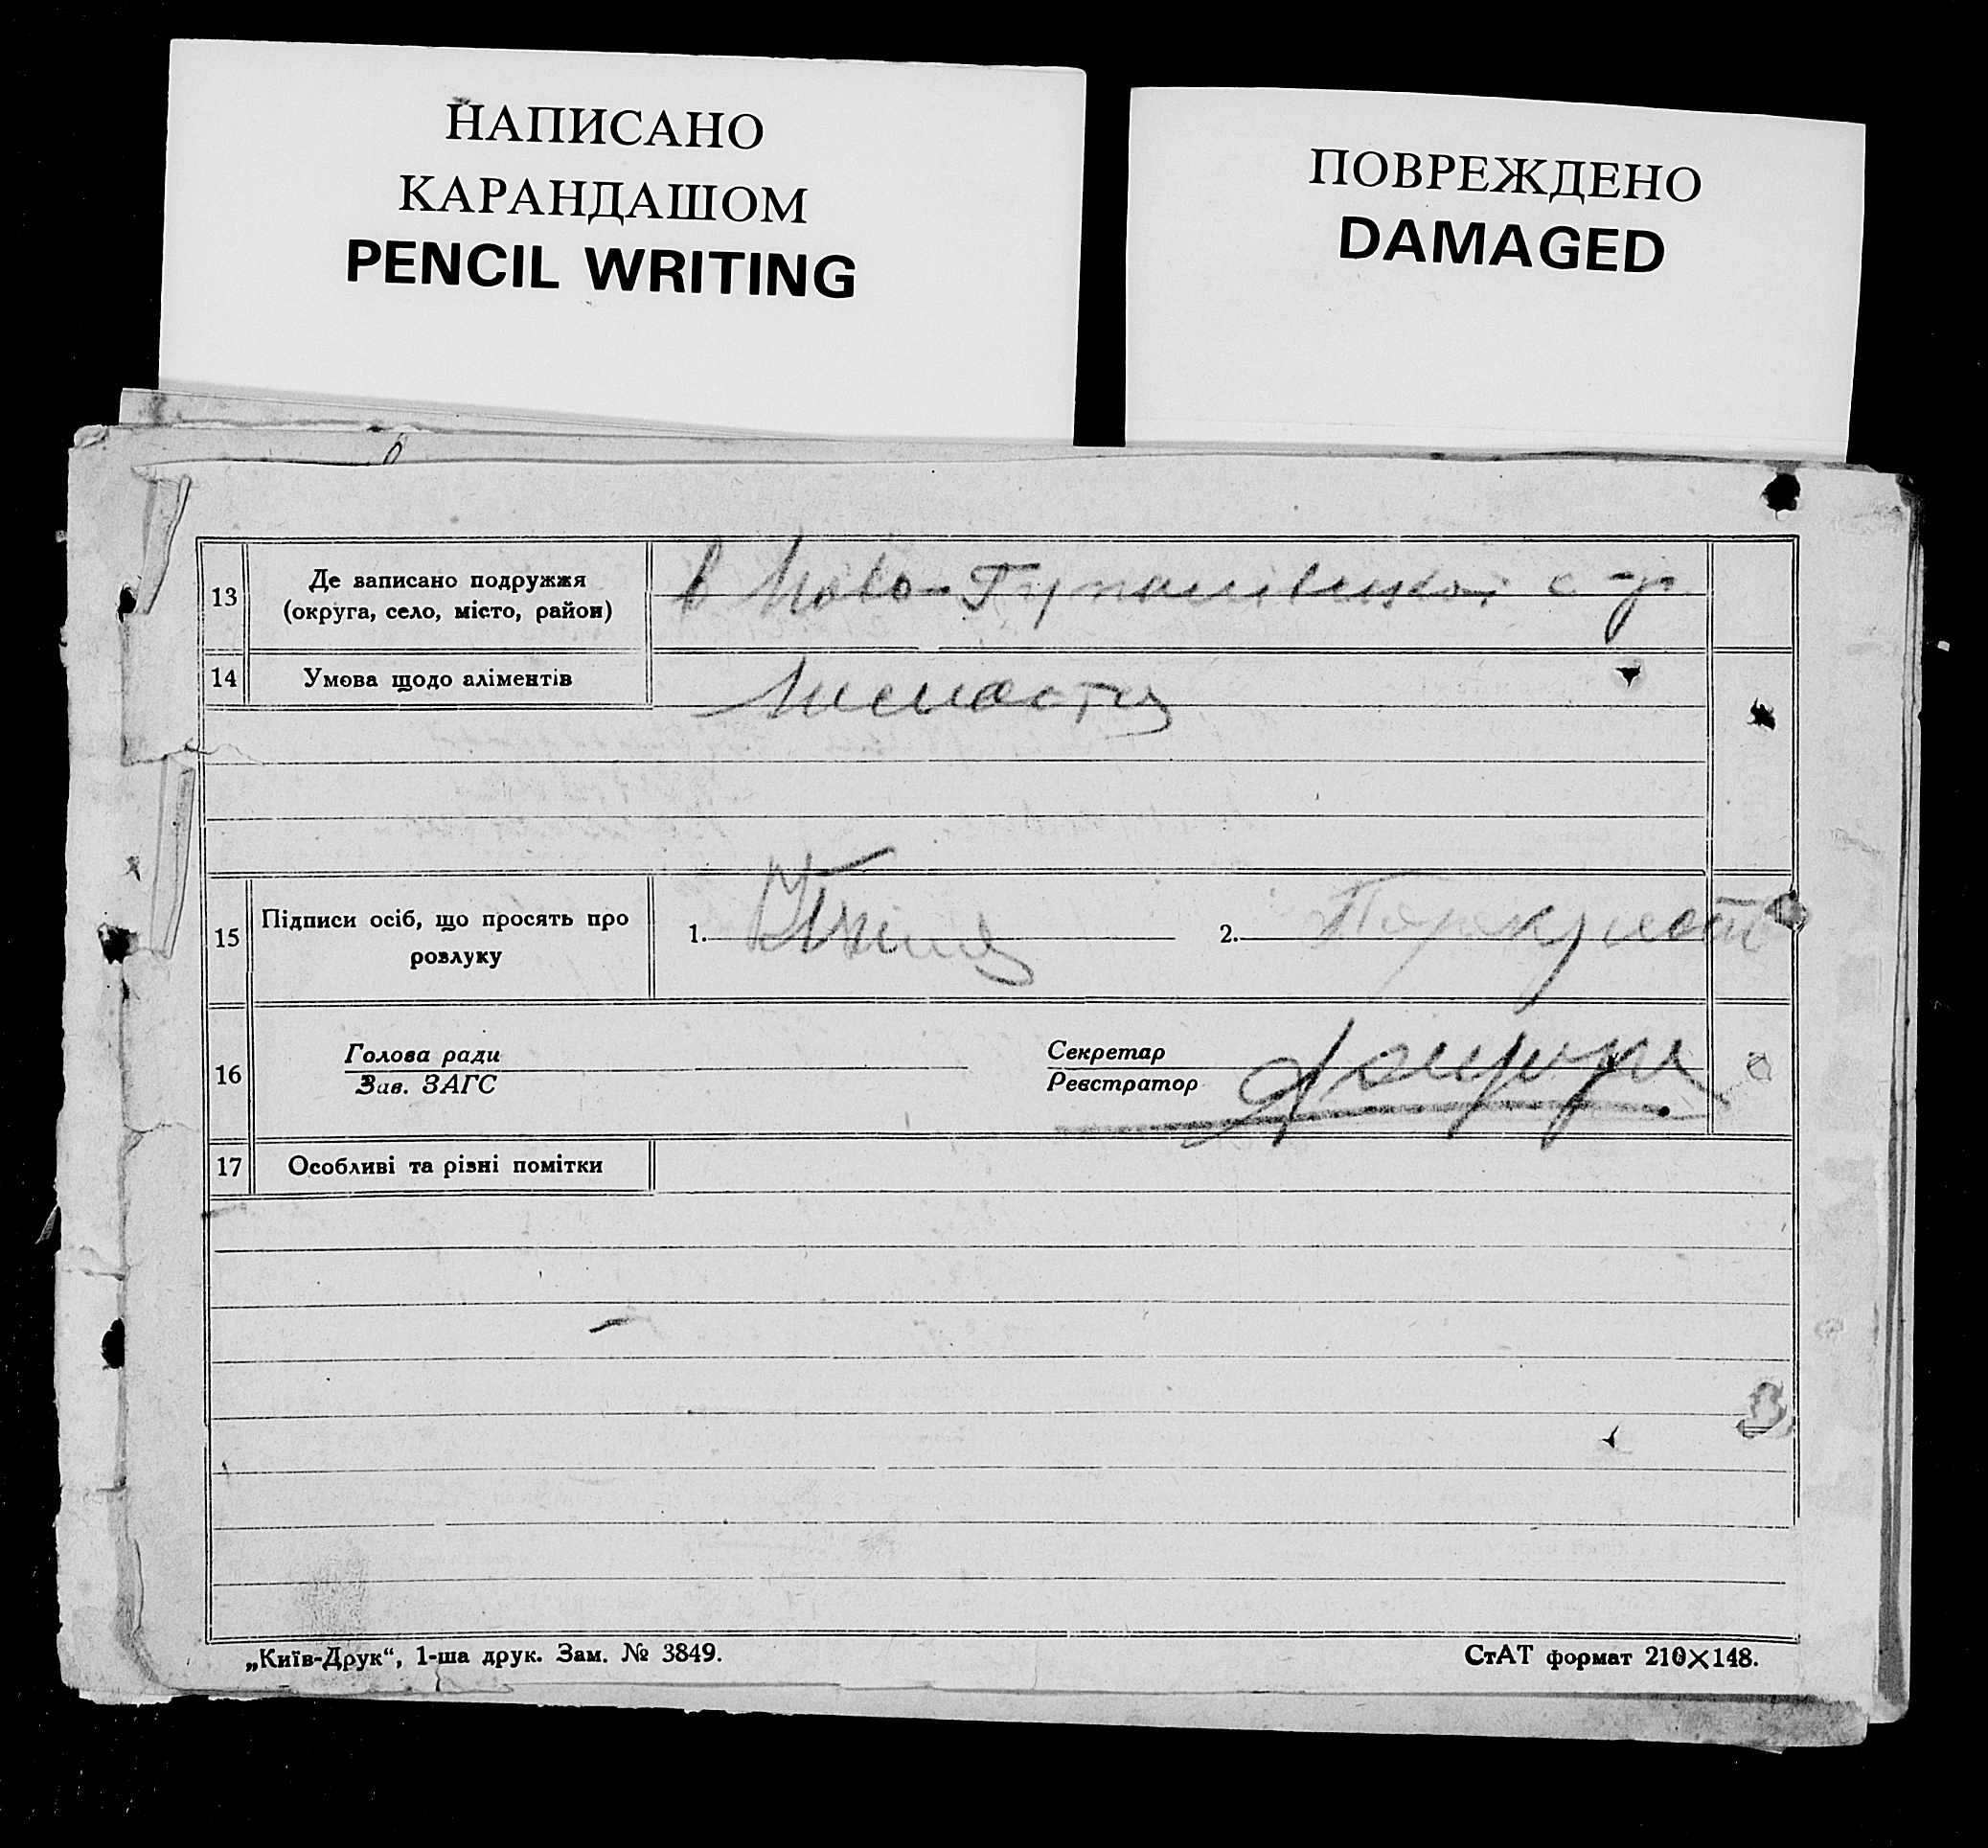 НАПИСАНО
КАРАНДАШОМ
PENCIL WRITING
ПОВРЕЖДЕНО
DAMAGED
13 Де записано подружжя
(округа, село, місто, район)
в Ново-
14 Умова щодо аліментів
15 Підписи осіб, що просять про
розлуку
1. 2.
16 Голова ради
Зав. ЗАГС
Секретар
Реєстратор
17 Особливі та різні помітки
„Київ-Друк“, 1-ша друк. Зам. № 3849.
СтАТ формат 210×148.